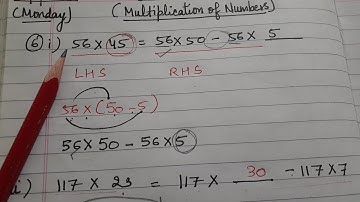 (Monday) (Multiplication of Numbers)
6 i) 56 × 45 = 56 × 50 - 56 × 5
LHS RHS
56 × (50 - 5)
56 × 50 - 56 × 5
i) 117 × 23 = 117 × 30 - 117 × 7